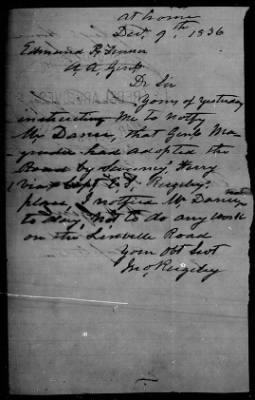 at home
Dec. 9th. 1836
Edmund R. Fenner
A. A. Genl
Dr Sir
Yours of yesterday
instructing me to notify
Mr Dance, that Genl Ma-
had adopted the
Road by Ferry
(via Capt Rugeley's
place, I notified Mr Dance
to day, not to do any work
on the Linville Road
Your Obt Svt
Jno, Rugeley